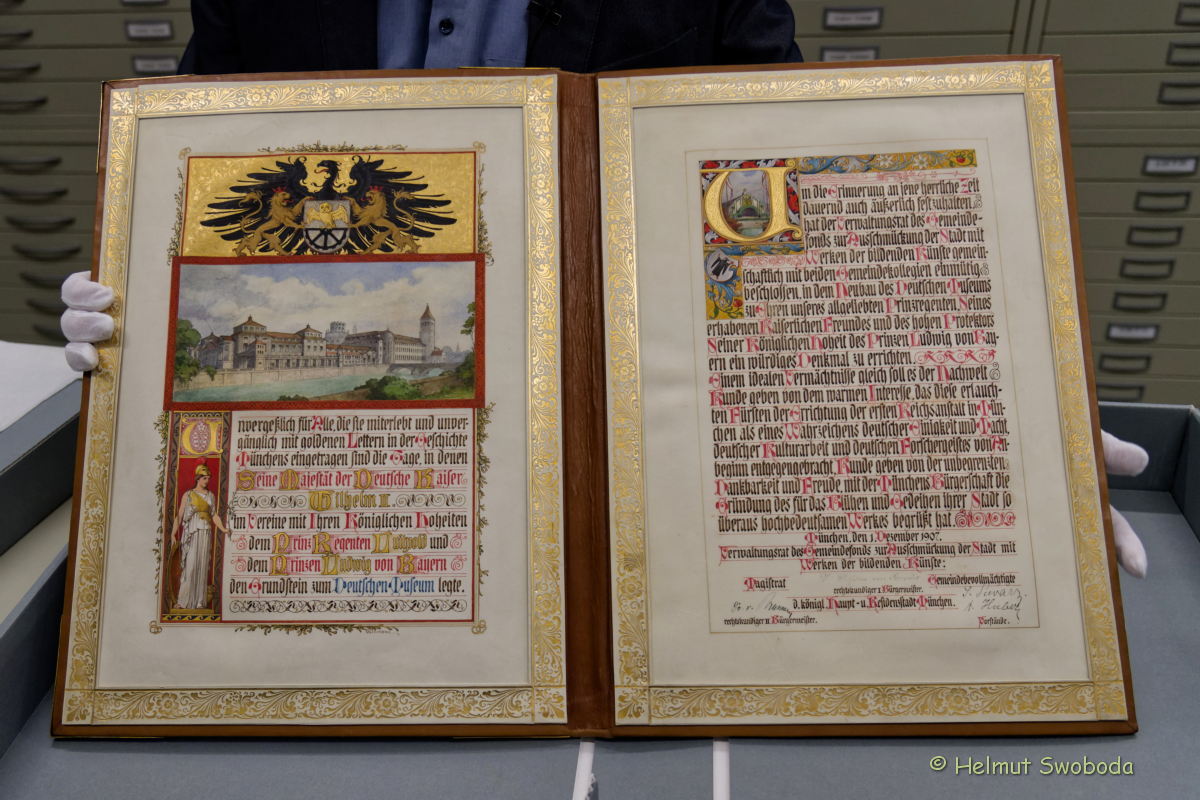 Unvergeßlich für Alle, die sie miterlebt und unver-
gänglich mit goldenen Lettern in der Geschichte
Münchens eingetragen sind die Tage, in denen
Seine Majestät der Deutsche Kaiser
Wilhelm II.
im Vereine mit Ihren Königlichen Hoheiten
dem Prinz Regenten Luitpold und
dem Prinzen Ludwig von Bayern
den Grundstein zum Deutschen Museum legte.
Um die Erinnerung an jene herrliche Zeit
dauernd auch äußerlich festzuhalten,
hat der Verwaltungsrat des Gemeinde-
fonds zur Ausschmückung der Stadt mit
Werken der bildenden Künste gemein-
schaftlich mit beiden Gemeindekollegien einmütig
beschlossen, in dem Neubau des Deutschen Museums
zu Ehren unseres allgeliebten Prinzregenten Seines
erhabenen Kaiserlichen Freundes und des hohen Protektors
Seiner Königlichen Hoheit des Prinzen Ludwig von Bay-
ern ein würdiges Denkmal zu errichten.
Einem idealen Vermächtnisse gleich soll es der Nachwelt
Kunde geben von dem warmen Interesse, das diese erlauch-
ten Fürsten der Errichtung der ersten Reichsanstalt in Mün-
chen als eines Wahrzeichens deutscher Einigkeit und Macht,
deutscher Kulturarbeit und deutschen Forschergeistes von An-
beginn entgegengebracht, Kunde geben von der unbegrenzten
Dankbarkeit und Freude mit der Münchens Bürgerschaft die
Gründung des für das Blühen und Gedeihen ihrer Stadt so
überaus hochbedeutsamen Werkes begrüßt hat.
München, den 1. Dezember 1907.
Verwaltungsrat des Gemeindefonds zur Ausschmückung der Stadt mit
Werken der bildenden Künste:
Magistrat Gemeindebevollmächtigte
rechtskundiger I. Bürgermeister.
d. königl. Haupt- u. Residenzstadt München. A. Huber
rechtskundiger II. Bürgermeister. Vorstände.
© Helmut Swoboda